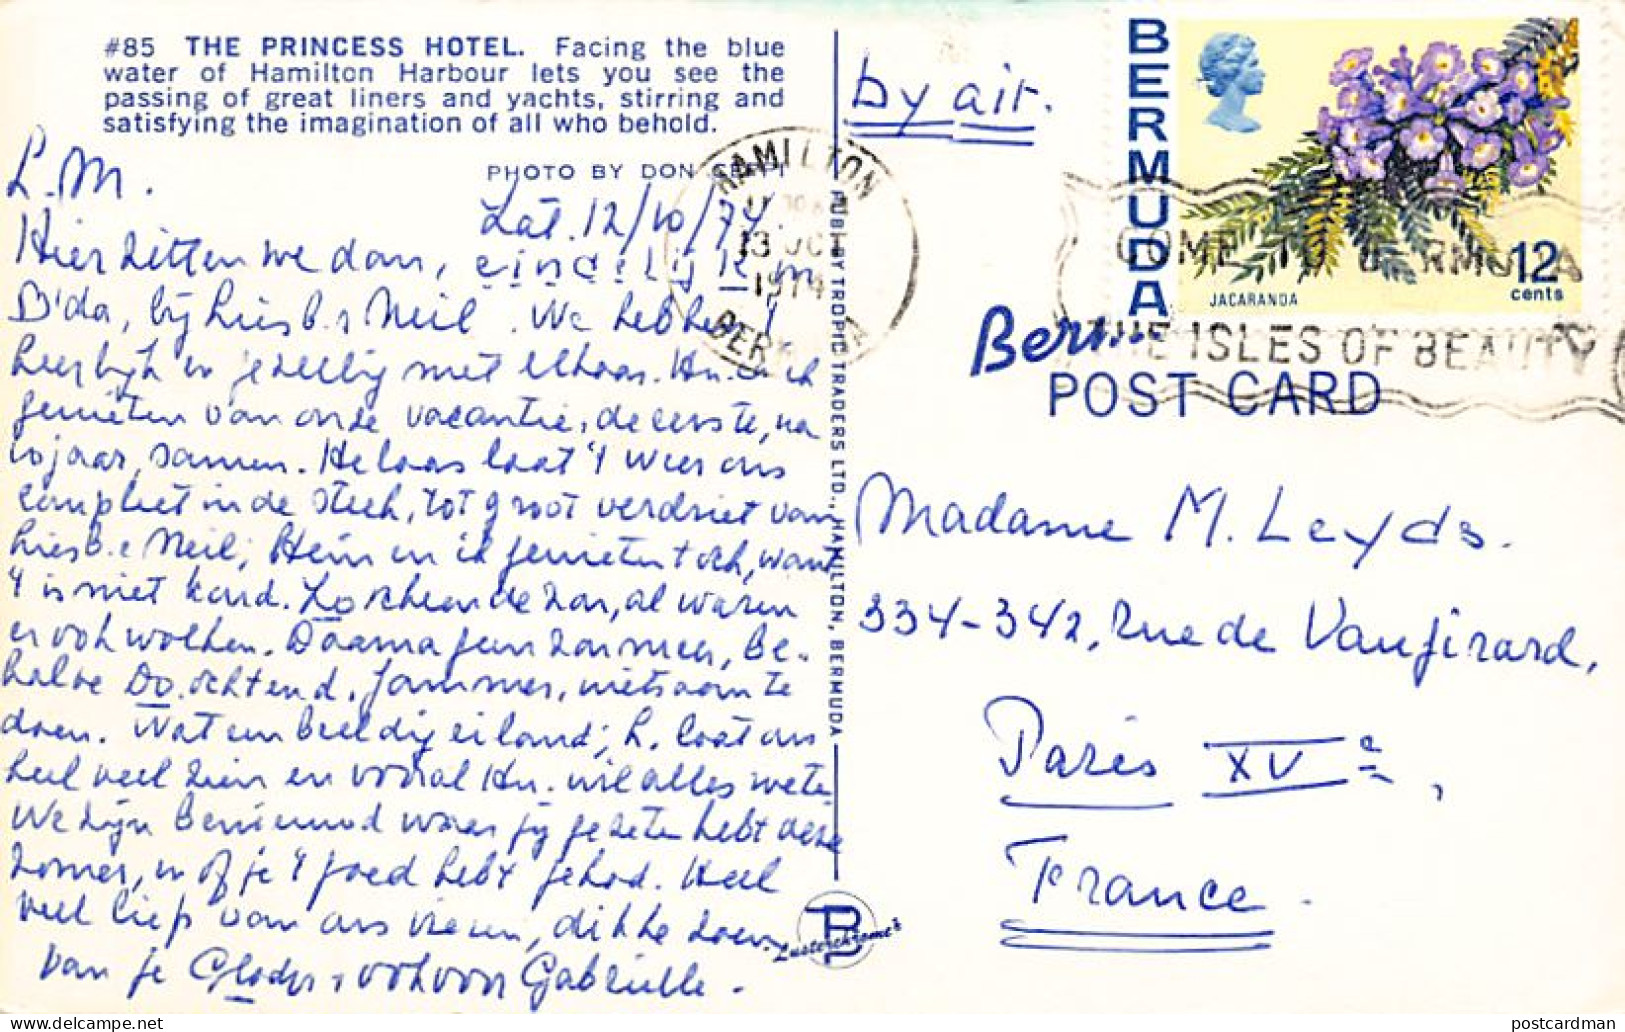 #85 THE PRINCESS HOTEL. Facing the blue
water of Hamilton Harbour lets you see the
passing of great liners and yachts, stirring and
satisfying the imagination of all who behold.
PHOTO BY DON
L.M.
Zat. 12/10/74.
Hier zitten we dan, eindelijk in
B'da, bij Liesb. & Neil. We hebben 't
heerlijk en gezellig met elkaar. Hn. en ik
genieten van onze vacantie, de eerste, na
jaar, samen. Helaas laat 't weer ons
compleet in de steek, tot groot verdriet van
Liesb. & Neil; Hein en ik genieten toch, want
't is niet koud. Zo scheen de zon, al waren
er ook wolken. Daarna geen zon meer, be-
halve Do. ochtend. Jammer, niets aan te
doen. Wat een beeldig eiland; L. laat ons
heel veel zien en vooral Hn. wil alles weten
We zijn benieuwd waar jij gezeten hebt deze
zomer, en of je 't goed hebt gehad. Heel
veel liefs van ons vieren, dikke zoen
van je Gladys, ook voor Gabriëlle.
PUBL. BY TROPIC TRADERS LTD., HAMILTON, BERMUDA
Lusterchrome
by air.
HAMILTON
13 OC
1974
BER
BERMUDA
JACARANDA
12
cents
COME TO BERMUDA
THE ISLES OF BEAUTY
POST CARD
Madame M. Leyds.
334-342, Rue de Vaugirard,
Paris XVe,
France.
postcardman